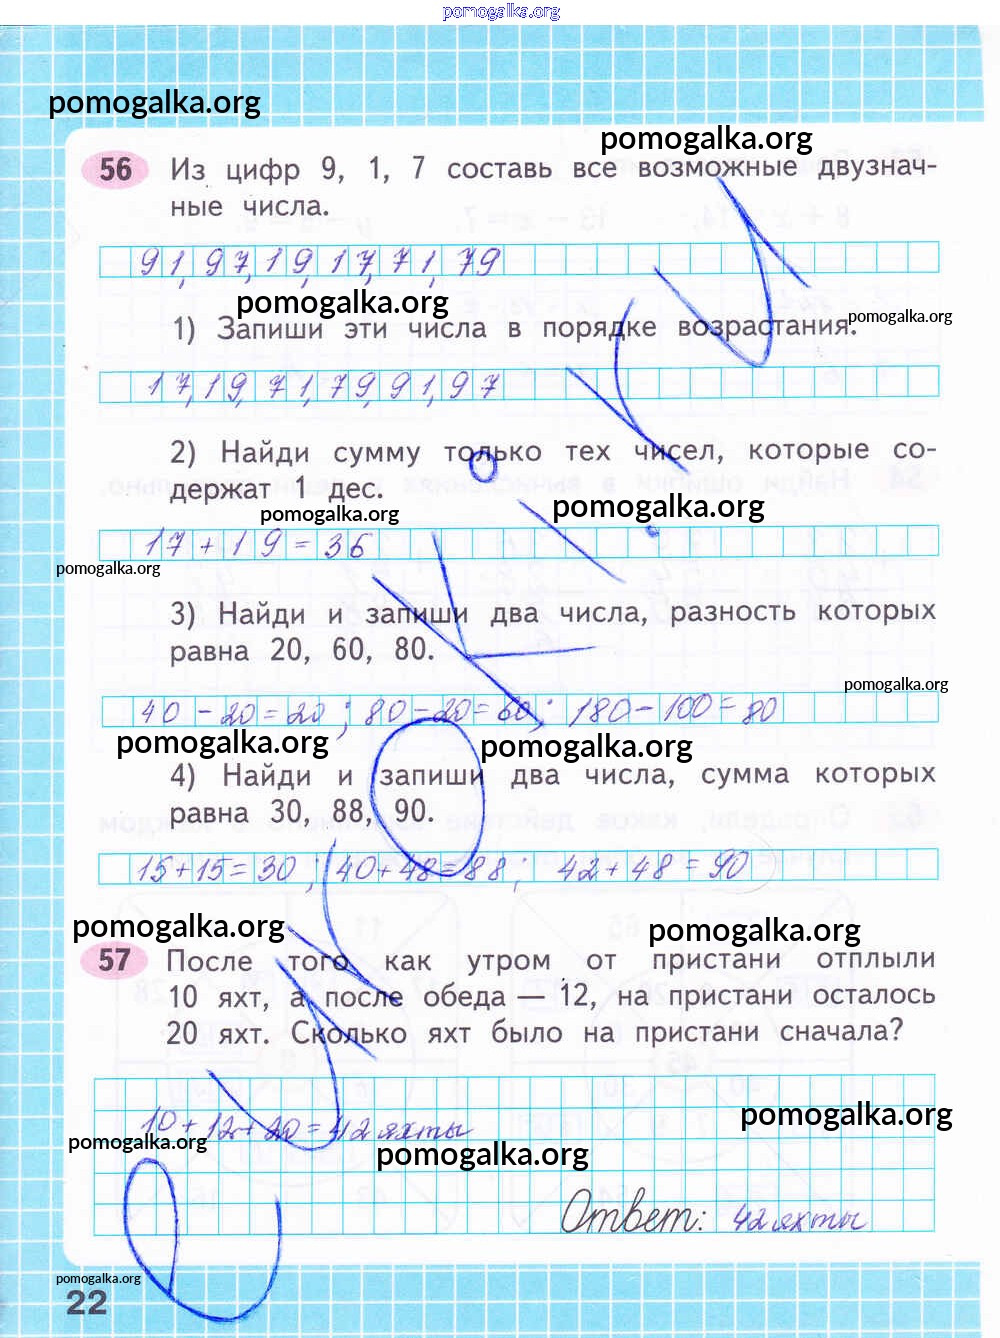 pomogalka.org
pomogalka.org
pomogalka.org
56 Из цифр 9, 1, 7 составь все возможные двузнач-
ные числа.
91, 97, 19, 17, 71, 79
pomogalka.org
1) Запиши эти числа в порядке возрастания.
pomogalka.org
17, 19, 71, 79, 91, 97
2) Найди сумму только тех чисел, которые со-
держат 1 дес.
pomogalka.org
pomogalka.org
17 + 19 = 36
pomogalka.org
3) Найди и запиши два числа, разность которых
равна 20, 60, 80.
pomogalka.org
40 - 20 = 20 ; 80 - 20 = 60 ; 180 - 100 = 80
pomogalka.org
pomogalka.org
4) Найди и запиши два числа, сумма которых
равна 30, 88, 90.
15 + 15 = 30 ; 40 + 48 = 88 ; 42 + 48 = 90
pomogalka.org
pomogalka.org
57 После того как утром от пристани отплыли
10 яхт, а после обеда — 12, на пристани осталось
20 яхт. Сколько яхт было на пристани сначала?
pomogalka.org
10 + 12 + 20 = 42 яхты
pomogalka.org
pomogalka.org
Ответ: 42 яхты
pomogalka.org
22